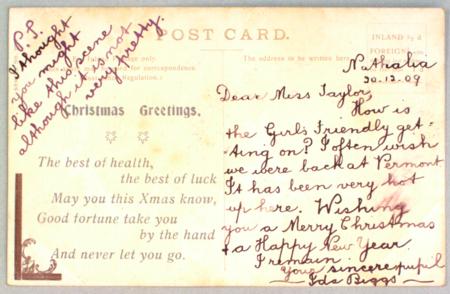 P.S.
I thought
you might
like this scene
although it is not
very pretty.
POST CARD.
INLAND ½d
FOREIGN
The address to be written here.
Christmas Greetings.
The best of health,
the best of luck
May you this Xmas know,
Good fortune take you
by the hand
And never let you go.
Nathalia
30.12.09
Dear Miss Taylor,
How is
the Girl's Friendly get-
ting on? I often wish
we were back at Vermont
It has been very hot
up here. Wishing
you a Merry Christmas
& a Happy New Year.
I remain
your sincere pupil
Ida Biggs